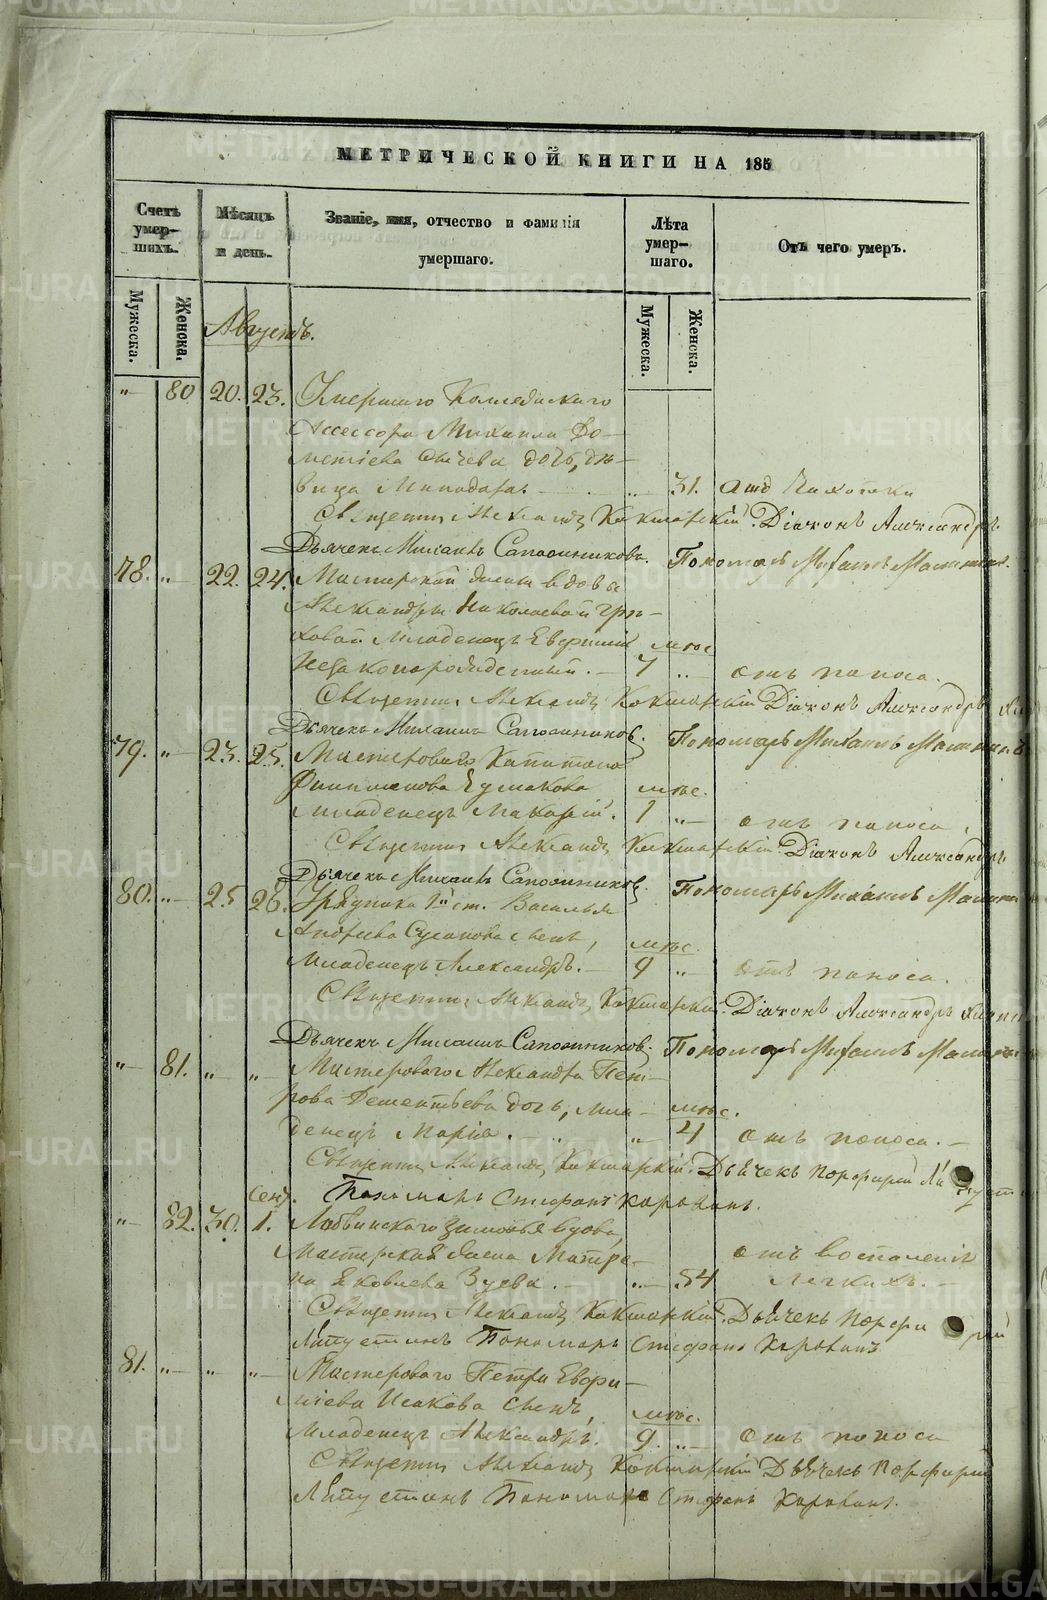 МЕТРИЧЕСКОЙ КНИГИ НА 185
Счетъ умер-шихъ.
Мѣсяцъ и день.
Званіе, имя, отчество и фамилія умершаго.
Лѣта умер-шаго.
Отъ чего умеръ.
Мужеска.
Женска.
Мужеска.
Женска.
Августъ.
"— 80 20. 23. Умершаго Коллежскаго
Ассессора Михаила До-
метіева Сычева дочь, дѣ-
вица Минодора. — "— 31. отъ Чахотки
Священникъ Александръ Кокшарскій Діаконъ Александръ
Дьячекъ Михаилъ Сапожниковъ. Пономарь Михаилъ
78. "— 22. 24. Мастерской жены вдовы
Александры Николаевой
Младенецъ Евфимій мѣс
Незаконорожденный. — 7 "— отъ поноса.
Священникъ Александръ Кокшарскій Діаконъ Александръ
Дьячекъ Михаилъ Сапожниковъ. Пономарь Михаилъ
79. "— 23. 25. Мастероваго Капитона
Филимонова Ермакова мѣс.
младенецъ Макарій. 1 "— отъ поноса.
Священникъ Александръ Кокшарскій Діаконъ Александръ
Дьячекъ Михаилъ Сапожниковъ. Пономарь Михаилъ
80. "— 25 26. Урядника ст. Василья
Андреева Сусанова сынъ, мѣс.
Младенецъ Александръ. — 9 "— отъ поноса.
Священникъ Александръ Кокшарскій Діаконъ Александръ
Дьячекъ Михаилъ Сапожниковъ. Пономарь Михаилъ
"— 81. "— "— Мастероваго Александра Пет-
рова Дементьева дочь, мла- мѣс.
денецъ Марія. — "— 4 отъ поноса. —
Священникъ Александръ Кокшарскій. Дьячекъ Порфирій
Сент. Пономарь Стефанъ
"— 82. 30. 1. зимовья вдова,
Мастерская жена Матре- отъ воспаленія
на Яковлева Зуева. — "— 54 легкихъ. —
Священникъ Александръ Кокшарскій. Дьячекъ Порфирій
Пономарь Стефанъ
81. "— "— "— Мастероваго Петра Евфи-
міева Исакова сынъ, мѣс.
Младенецъ Александръ. 9. "— отъ поноса
Священникъ Александръ Кокшарскій Дьячекъ Порфирій
Пономарь Стефанъ
METRIKI.GASO-URAL.RU